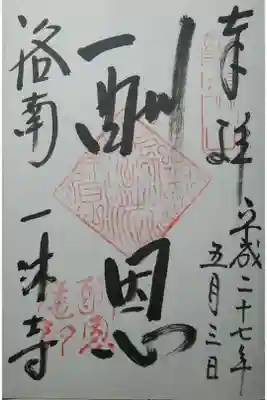 奉拝
平成二十七年
五月三日
酬恩
洛南 一休寺
酬恩
庵印